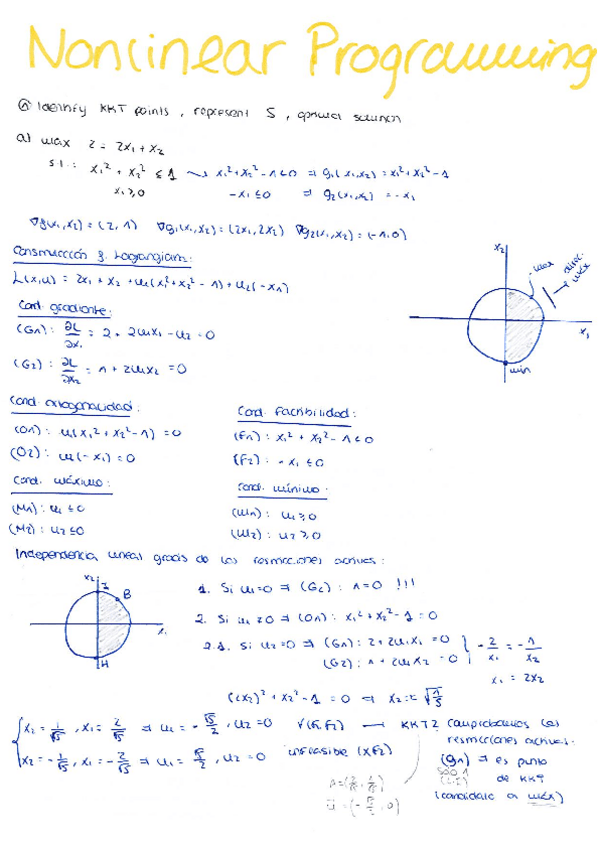 Nonlinear Programming
Identify KKT points, represent S, optimal solution
a) max z = 2x₁ + x₂
s.t.: x₁² + x₂² ≤ 1 ⇝ x₁² + x₂² - 1 ≤ 0 ⇒ g₁(x₁,x₂) = x₁² + x₂² - 1
x₁ ≥ 0 -x₁ ≤ 0 ⇒ g₂(x₁,x₂) = -x₁
∇f(x₁,x₂) = (2,1) ∇g₁(x₁,x₂) = (2x₁,2x₂) ∇g₂(x₁,x₂) = (-1,0)
Construcción f. Lagrangiana:
L(x,u) = 2x₁ + x₂ + u₁(x₁² + x₂² - 1) + u₂(-x₁)
x₂
max
direc. máx
x₁
min
Cond. gradiente:
(G1): ∂L/∂x₁ = 2 + 2u₁x₁ - u₂ = 0
(G2): ∂L/∂x₂ = 1 + 2u₁x₂ = 0
Cond. ortogonalidad:
(O1): u₁(x₁² + x₂² - 1) = 0
(O2): u₂(-x₁) = 0
Cond. factibilidad:
(F1): x₁² + x₂² - 1 ≤ 0
(F2): -x₁ ≤ 0
Cond. máximo:
(M1): u₁ ≤ 0
(M2): u₂ ≤ 0
Cond. mínimo:
(m1): u₁ ≥ 0
(m2): u₂ ≥ 0
Independencia lineal grads de las restricciones activas:
x₂
I
B
x₁
H
1. Si u₁=0 ⇒ (G2): 1=0 !!!
2. Si u₁ ≠ 0 ⇒ (O1): x₁² + x₂² - 1 = 0
2.1. Si u₂=0 ⇒ (G1): 2 + 2u₁x₁ = 0
(G2): 1 + 2u₁x₂ = 0 } -2/x₁ = -1/x₂
x₁ = 2x₂
(2x₂)² + x₂² - 1 = 0 ⇒ x₂ = ± √1/5
x₂ = 1/√5, x₁ = 2/√5 ⇒ u₁ = -√5/2, u₂ = 0 √(F1,F2) → KKT? Comprobamos las
restricciones activas:
x₂ = -1/√5, x₁ = -2/√5 ⇒ u₁ = √5/2, u₂ = 0 infeasible (x F2)
(g1) ⇒ es punto
de KKT
(candidato a máx)